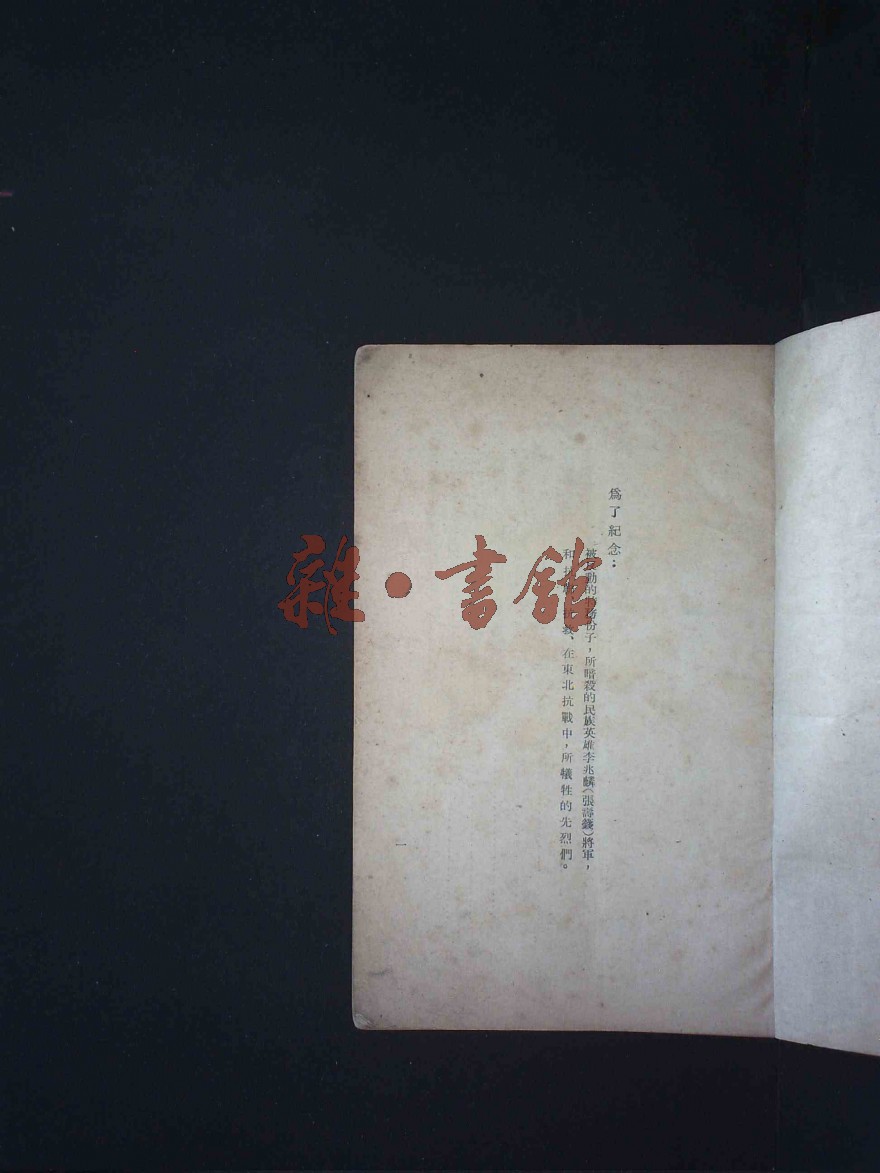 為了紀念：
被 動的 份子，所暗殺的民族英雄李兆麟（張壽籛）將軍，
和抗 、在東北抗戰中，所犧牲的先烈們。
一
雜·書館